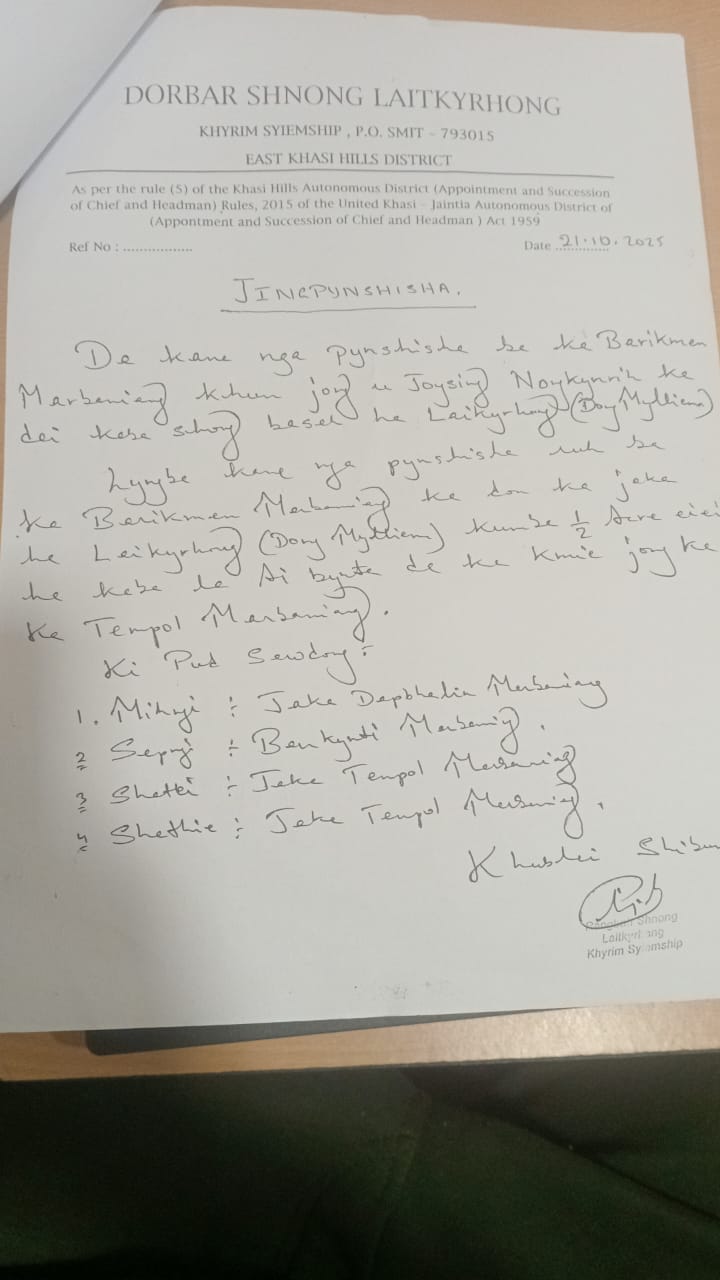 DORBAR SHNONG LAITKYRHONG
KHYRIM SYIEMSHIP , P.O. SMIT - 793015
EAST KHASI HILLS DISTRICT
As per the rule (5) of the Khasi Hills Autonomous District (Appointment and Succession
of Chief and Headman) Rules, 2015 of the United Khasi - Jaintia Autonomous District of
(Appontment and Succession of Chief and Headman ) Act 1959
Ref No : .................
Date 21.10.2025
JINGPYNSHISHA.
Da kane nga pynshisha ba ka Barikmen
Marbaniang khun jong u Joysing Noykynrih ka
dei kaba shong basah ha Laitkyrhong (Dong Mylliem)
Lyngba kane nga pynshisha ruh ba
ka Barikmen Marbaniang ka don ka jaka
ha Laitkyrhong (Dong Mylliem) kumba 1/2 Acre eiei
ha kaba la Ai bynta da ka kmie jong ka
Ka Tempol Marbaniang.
Ki Pud Sawdong :-
1. Mihngi :- Jaka Marbaniang
2 Sepngi :- Bankynti Marbaniang.
3 Shatei :- Jaka Tempol Marbaniang
4 Shathie :- Jaka Tempol Marbaniang.
Khublei Shibun
Rangbah Shnong
Laitkyrhong
Khyrim Syiemship